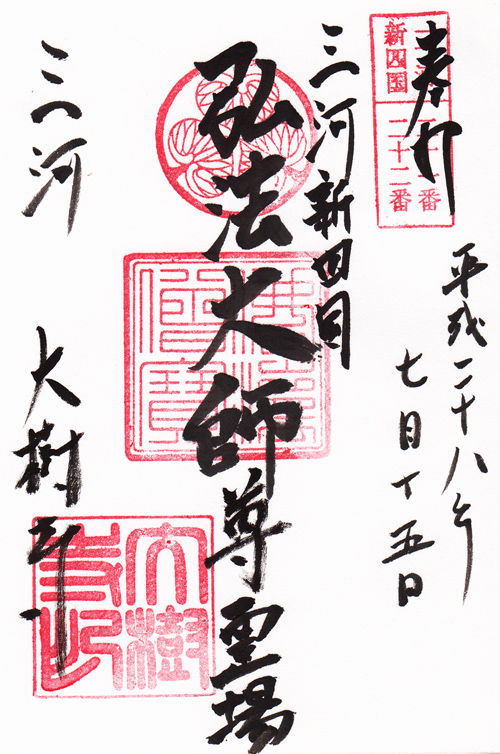 新四国
二十二番
平成二十八年
七月十五日
三河新四国
弘法大師尊霊場
佛法僧寶
三河
大樹寺
大樹寺印